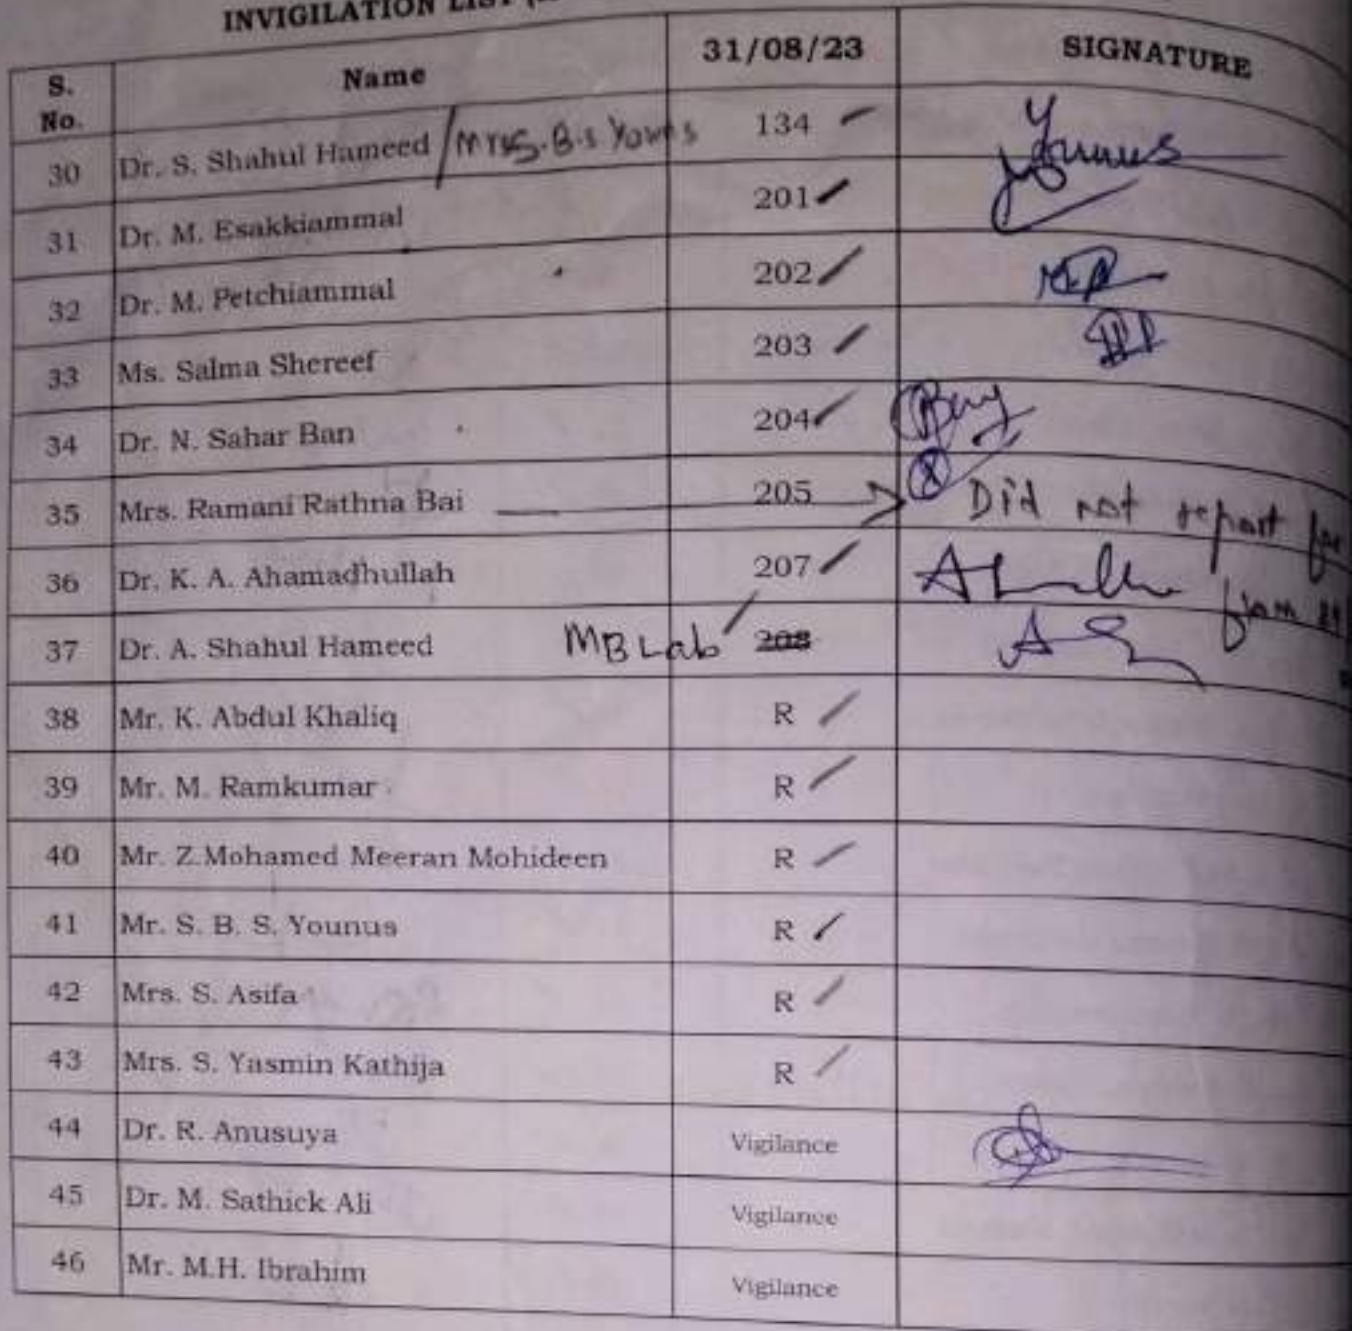 INVIGILATION LIST
S. No. Name 31/08/23 SIGNATURE
30 Dr. S. Shahul Hameed / 134 Younus
31 Dr. M. Esakkiammal 201
32 Dr. M. Petchiammal 202
33 Ms. Salma Shereef 203
34 Dr. N. Sahar Ban 204
35 Mrs. Ramani Rathna Bai 205 Did not report for
36 Dr. K. A. Ahamadhullah 207
37 Dr. A. Shahul Hameed MB Lab 208
38 Mr. K. Abdul Khaliq R
39 Mr. M. Ramkumar R
40 Mr. Z.Mohamed Meeran Mohideen R
41 Mr. S. B. S. Younus R
42 Mrs. S. Asifa R
43 Mrs. S. Yasmin Kathija R
44 Dr. R. Anusuya Vigilance
45 Dr. M. Sathick Ali Vigilance
46 Mr. M.H. Ibrahim Vigilance